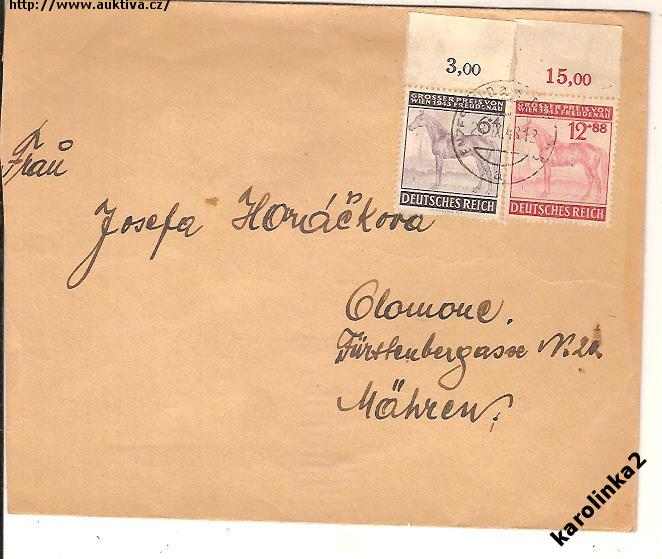 http://www.auktiva.cz/
3,00
15,00
GROSSER PREIS VON
WIEN 1943 FREUDENAU
DEUTSCHES REICH
GROSSER PREIS VON
WIEN 1943 FREUDENAU
12+88
DEUTSCHES REICH
Frau
Josefa Horáčkova
Olomouc.
Fürstenbergasse N. 22
Mähren.
karolinka2